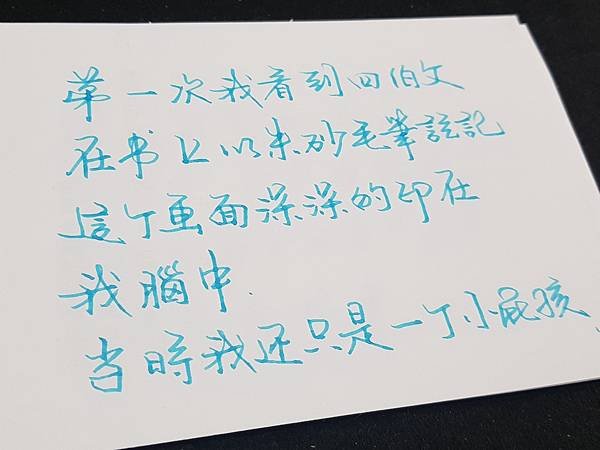 第一次我看到四伯父
在书上以朱砂毛筆註記
這个画面深深的印在
我腦中.
当時我还只是一个小屁孩.